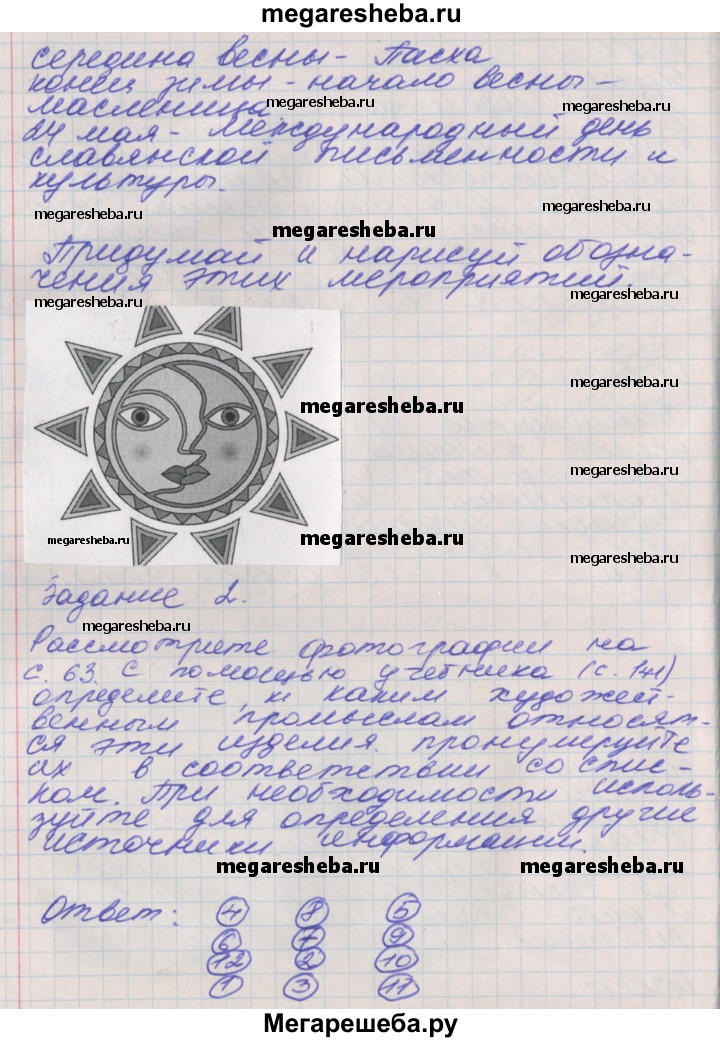 megaresheba.ru
середина весны - Пасха
конец зимы - начало весны -
масленица
megaresheba.ru
megaresheba.ru
24 мая - Международный день
славянской письменности и
культуры.
megaresheba.ru
megaresheba.ru
megaresheba.ru
Придумай и нарисуй обозна-
чения этих мероприятий.
megaresheba.ru
megaresheba.ru
megaresheba.ru
megaresheba.ru
megaresheba.ru
megaresheba.ru
megaresheba.ru
megaresheba.ru
Задание 2.
megaresheba.ru
Рассмотрите фотографии на
с. 63. С помощью учебника (с. 141)
определите, к каким художест-
венным промыслам относят-
ся эти изделия. пронумеруйте
их в соответствии со спис-
ком. При необходимости исполь-
зуйте для определения другие
источники информации.
megaresheba.ru
megaresheba.ru
Ответ: 4 8 5
6 7 9
12 2 10
1 3 11
Мегарешеба.ру